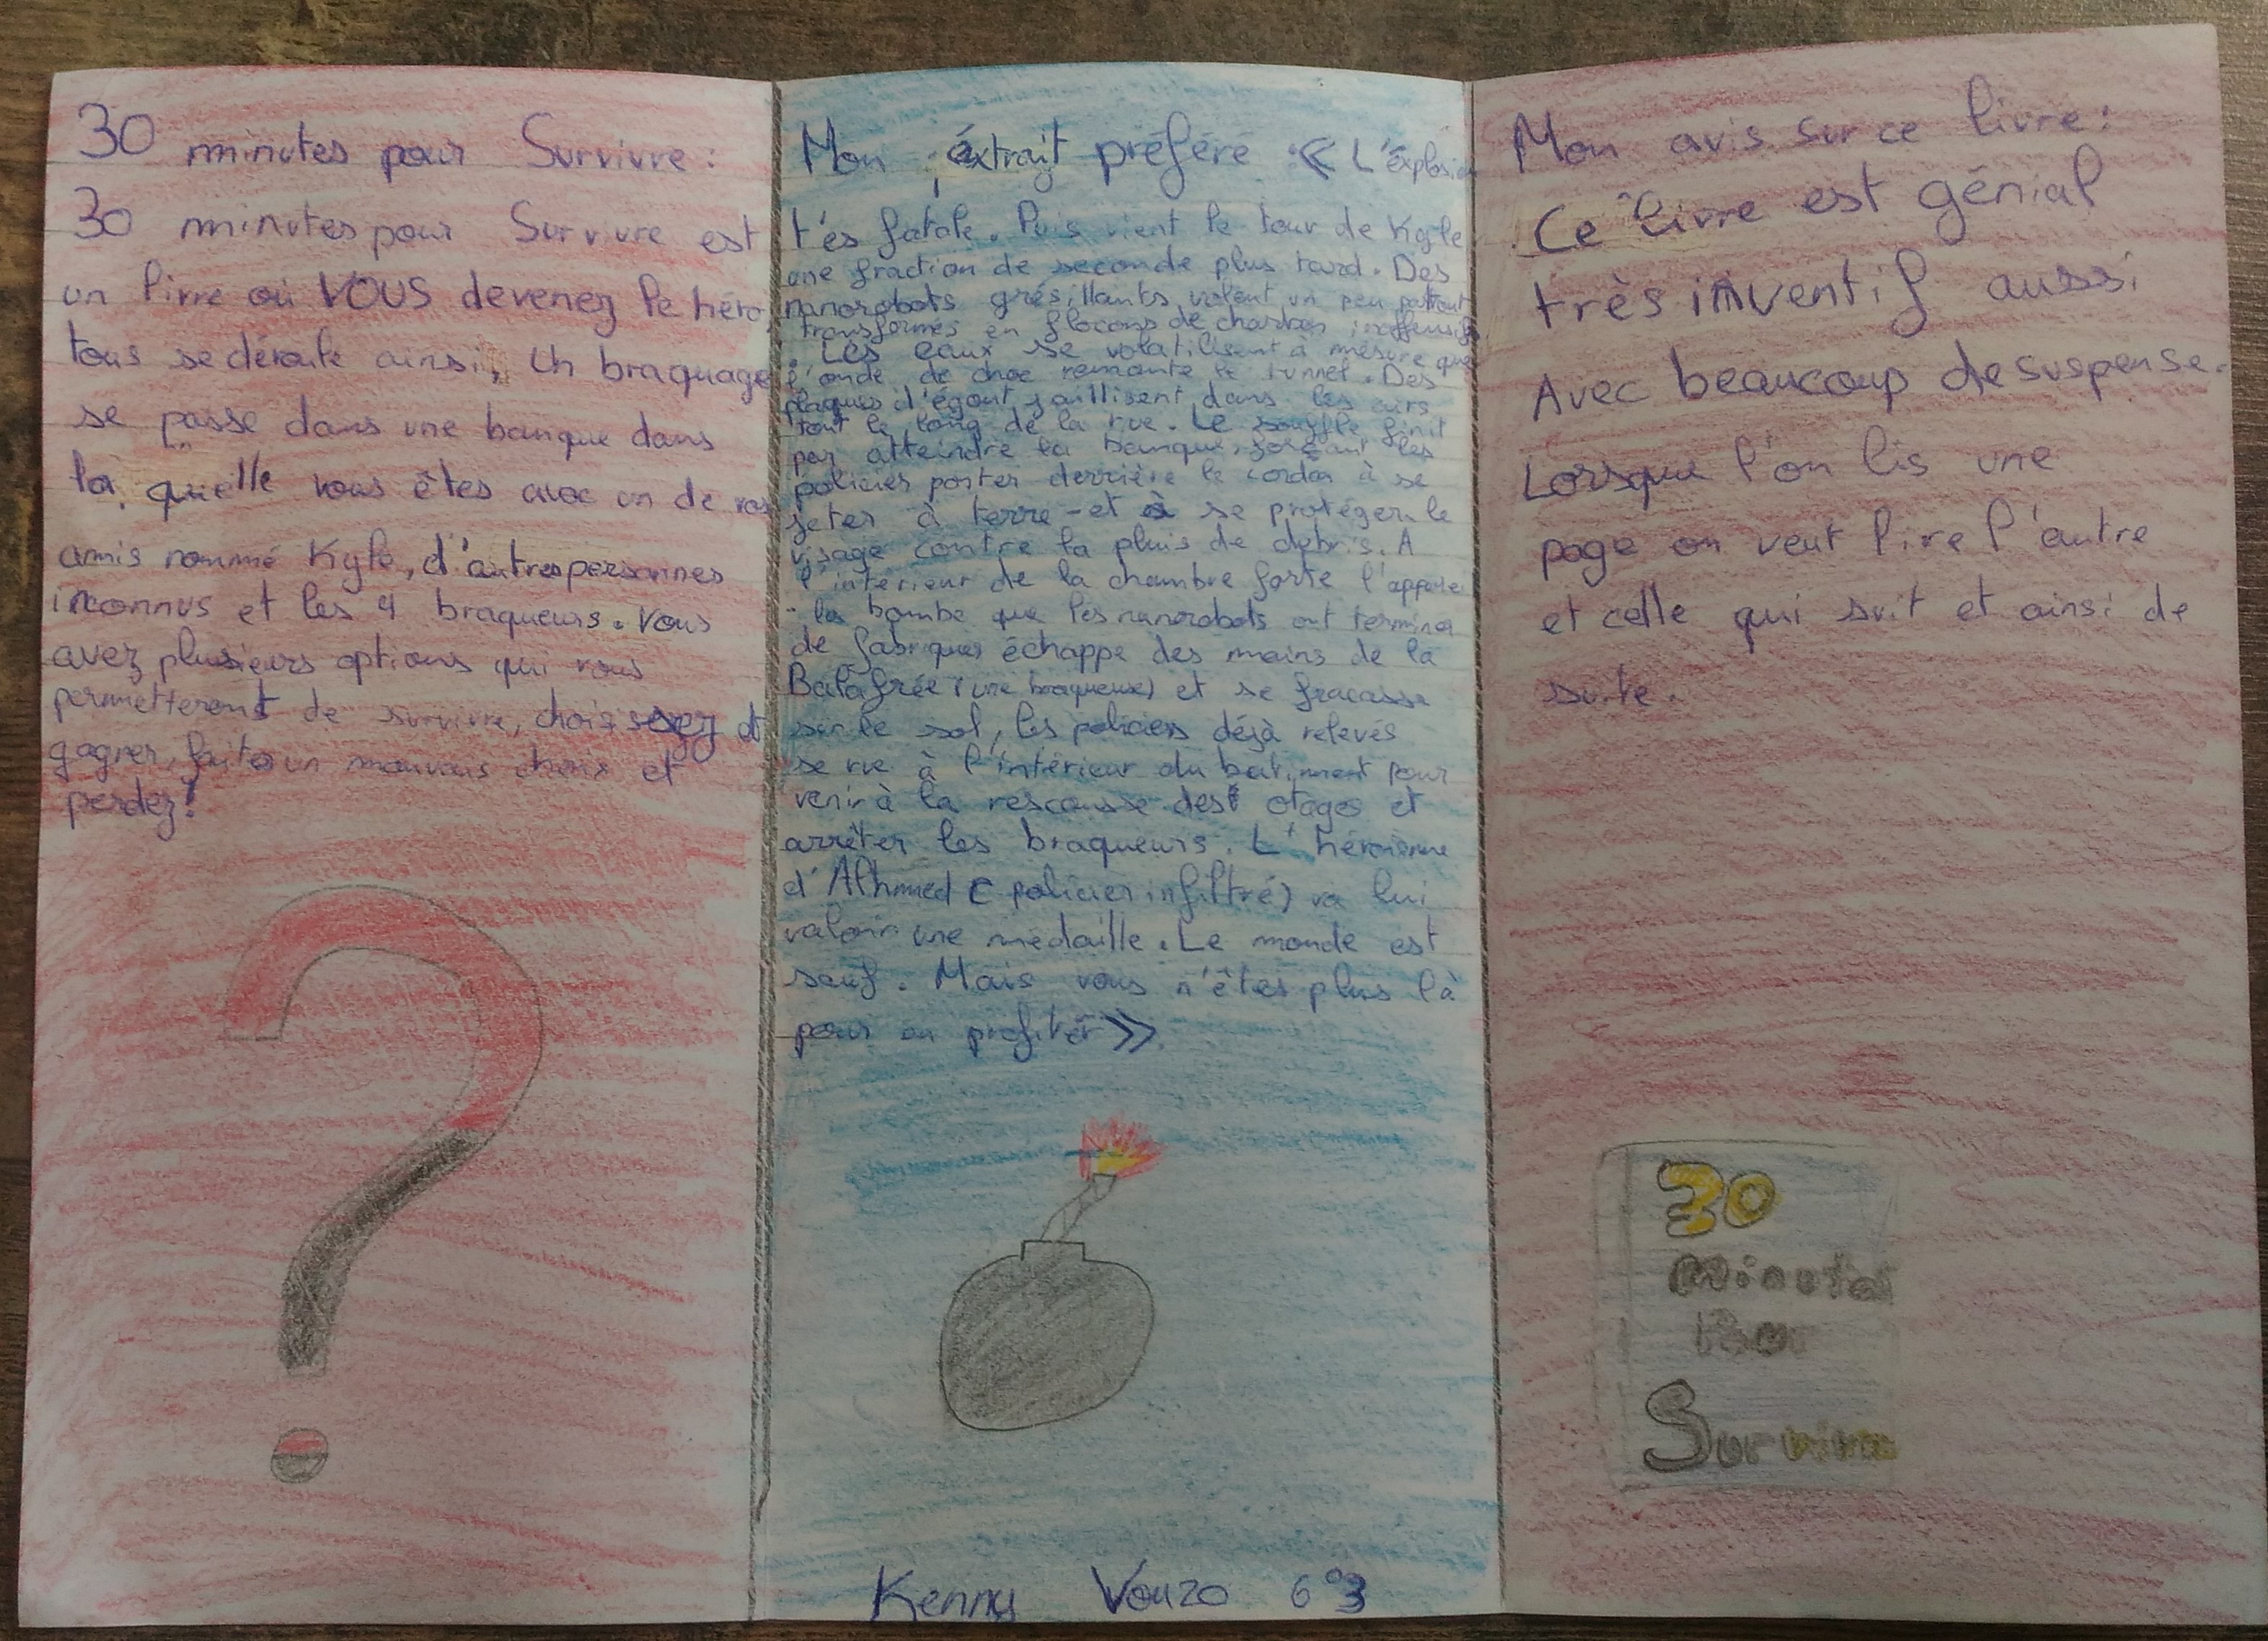 30 minutes pour Survivre :
30 minutes pour Survivre est
un livre où VOUS devenez le héro
tous se déroule ainsi, Un braquage
se passe dans une banque dans
la quelle vous êtes avec un de vos
amis nommé Kyle, d'autres personnes
inconnus et les 4 braqueurs. Vous
avez plusieurs options qui vous
permetteront de survivre, choisissez et
gagner, faites un mauvais choix et
perdez!
Mon éxtrait préféré « L'éxplosion
t'és fatale. Puis vient le tour de Kyle
une fraction de seconde plus tard. Des
nanorobots grésillants volent un peu partout
transformés en flocons de charbon inoffensifs
. Les eaux se volatilisent à mesure que
l'onde de choc remonte le tunnel. Des
plaques d'égout jaillisent dans les airs
tout le long de la rue. Le souffle finit
par atteindre la banque, forçant les
policiers poster derrière le cordon à se
jeter à terre - et à se protéger le
visage contre la pluis de débris. A
l'intérieur de la chambre forte l'appareil
- la bombe que les nanorobots ont terminer
de fabriquer échappe des mains de la
Balafrée (une braqueuse) et se fracasse
sur le sol, les policiers déjà relevés
se rue à l'intérieur du batiment pour
venir à la rescousse des otages et
arrêter les braqueurs. L'héroïsme
d'Alhmed (policier infiltré) va lui
valoir une médaille. Le monde est
sauf. Mais vous n'êtes plus là
pour en profiter »
Kenny Vouzo 6°3
Mon avis sur ce livre :
Ce livre est génial
très inventif aussi
Avec beaucoup de suspense.
Lorsque l'on lis une
page on veut lire l'autre
et celle qui suit et ainsi de
suite.
30
Minutes
Pour
Survivre